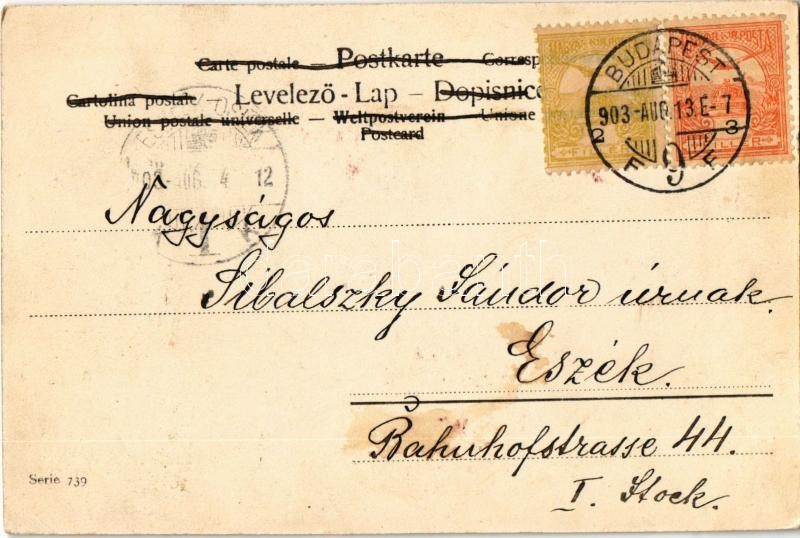 Carte postale – Postkarte – Corresp
Cartolina postale Levelező-Lap – Dopisnice
Union postale universelle – Weltpostverein – Unione
Postcard
BUDAPEST
903-AUG 13 E-7
2 3
F 9 F
4 12
FILLÉR
Nagyságos
Sibalszky Sándor úrnak.
Eszék.
Bahnhofstrasse 44.
I. Stock.
Serie 739